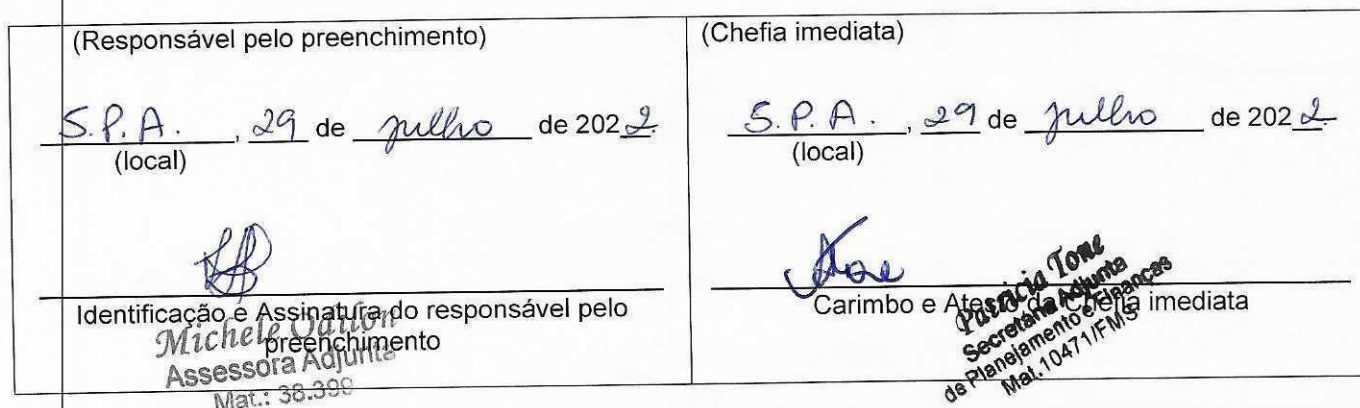 (Responsável pelo preenchimento)
S.P.A. , 29 de julho de 2022
(local)
Identificação e Assinatura do responsável pelo
preenchimento
Michele
Assessora Adjunta
Mat.: 38.399
(Chefia imediata)
S.P.A. , 29 de julho de 2022
(local)
Carimbo e Atesto da Chefia imediata
Patricia Tone
Secretária Adjunta
de Planejamento e Finanças
Mat.10471/FMS